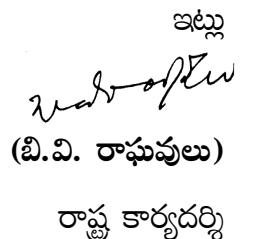 ఇట్లు
(బి.వి. రాఘవులు)
రాష్ట్ర కార్యదర్శి